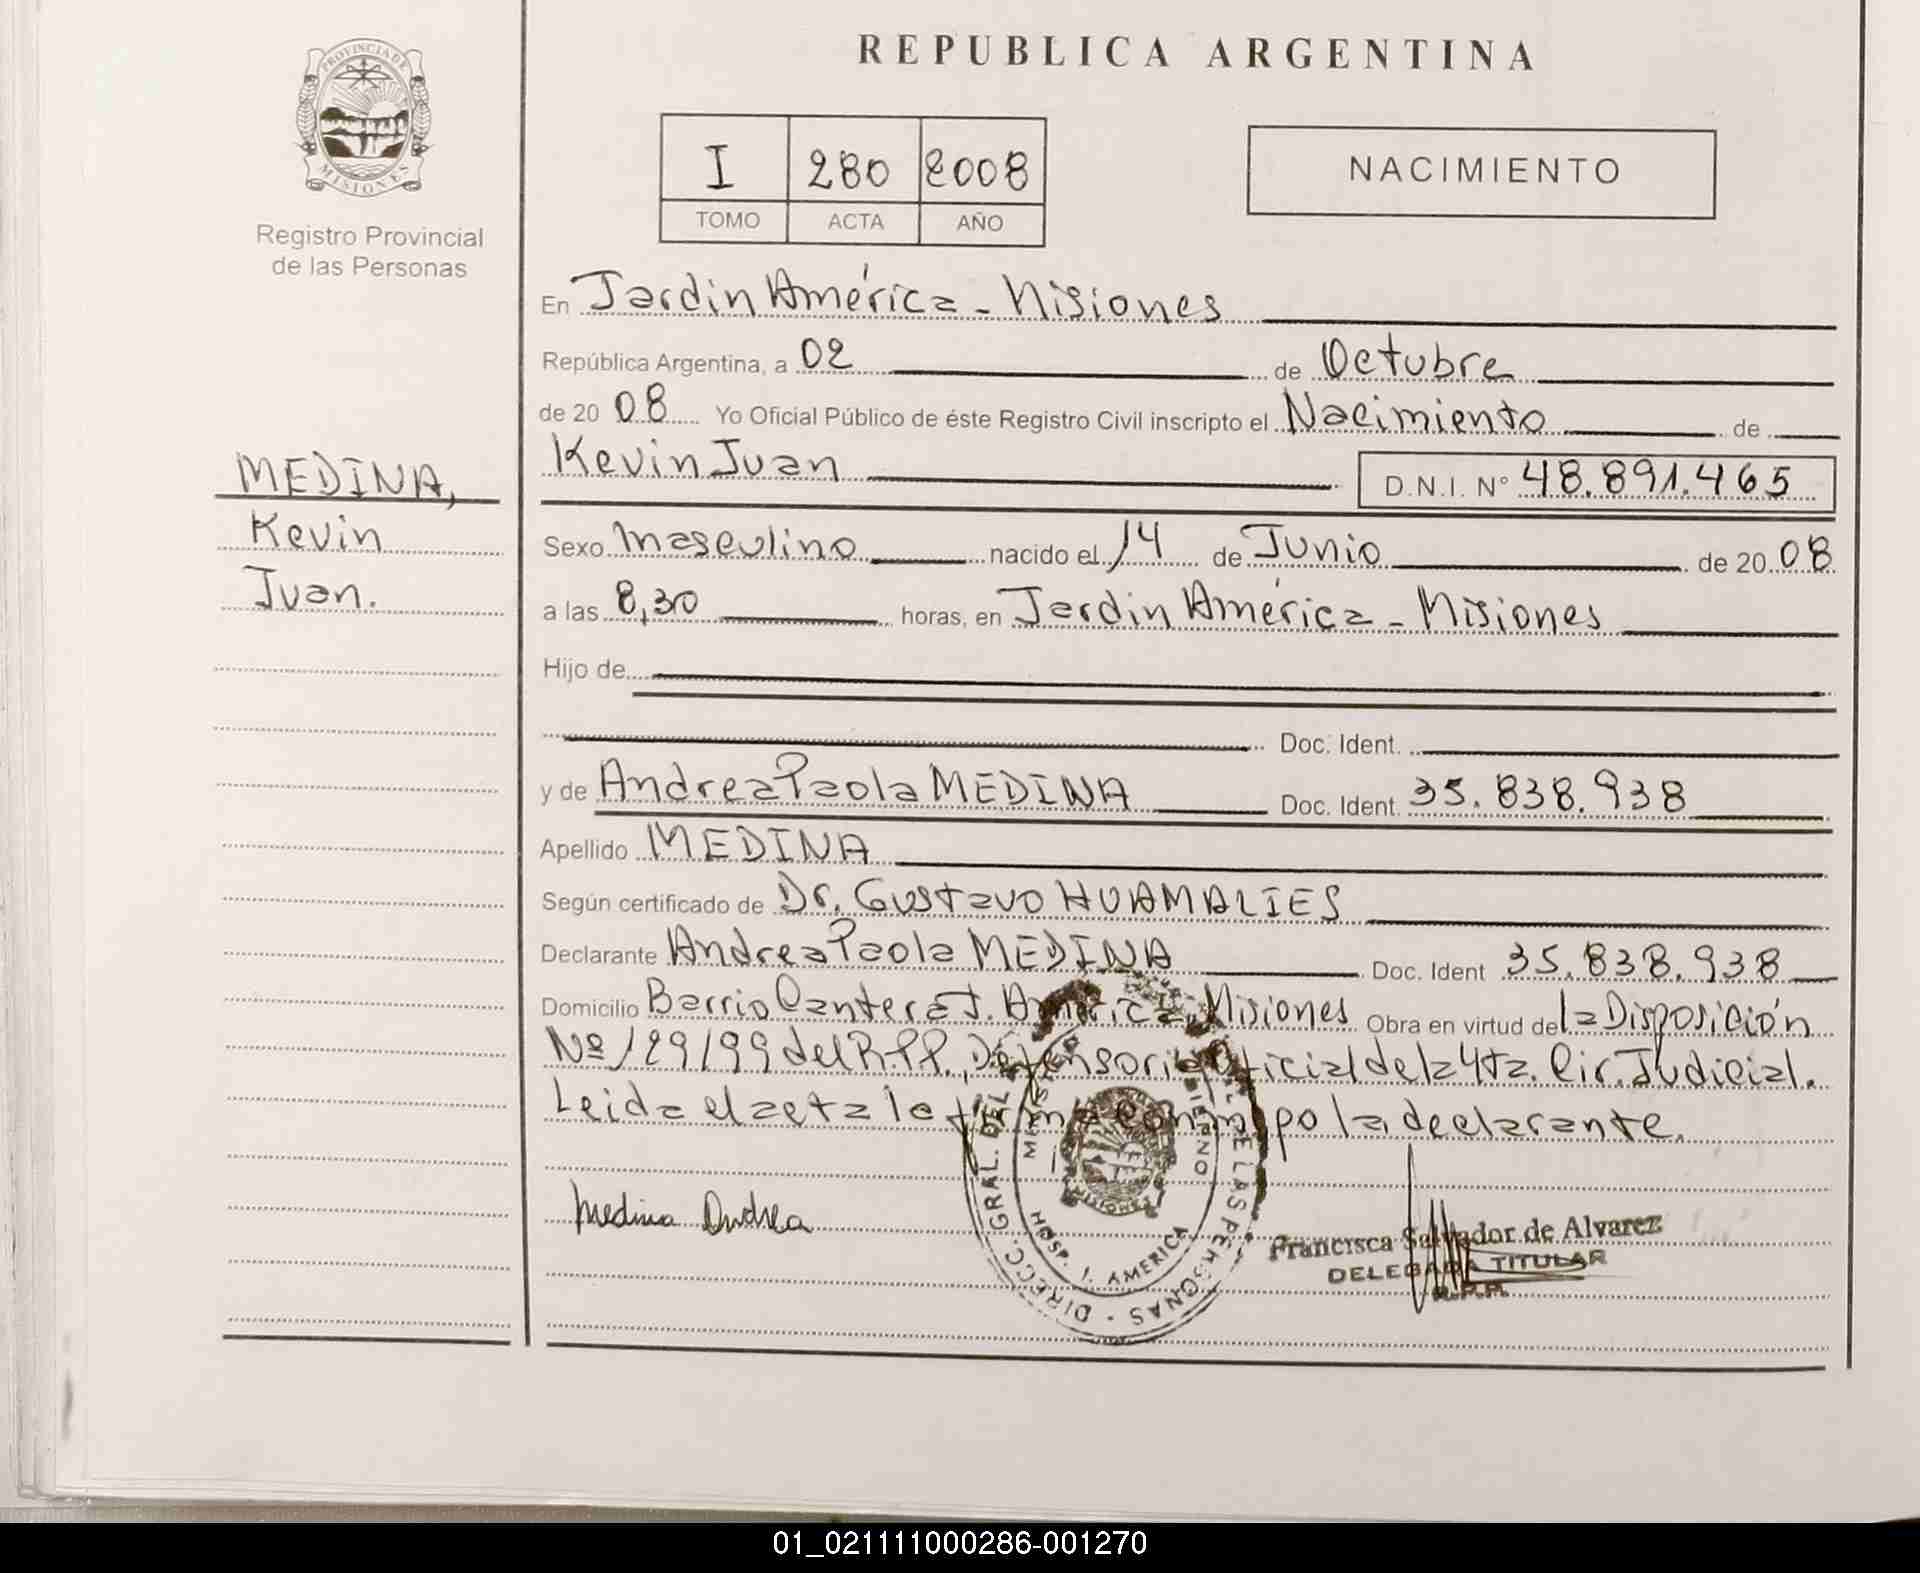 PROVINCIA DE
MISIONES
Registro Provincial
de las Personas
MEDINA,
Kevin
Juan.
REPUBLICA ARGENTINA
I 280 2008
TOMO ACTA AÑO
NACIMIENTO
En Jardin América - Misiones
República Argentina, a 02 de Octubre
de 20 08 Yo Oficial Público de éste Registro Civil inscripto el Nacimiento de
Kevin Juan D.N.I. N° 48.891.465
Sexo Masculino nacido el 14 de Junio de 20 08
a las 8,30 horas, en Jardin América - Misiones
Hijo de
Doc. Ident.
y de Andrea Paola MEDINA Doc. Ident. 35.838.938
Apellido MEDINA
Según certificado de Dr. Gustavo HUAMALIES
Declarante Andrea Paola MEDINA Doc. Ident 35.838.938
Domicilio Barrio Cantera J. América, Misiones Obra en virtud de la Disposición
Nº 129/99 del R.P.P., Defensoria Oficial de la 4ta. Cir. Judicial.
Leida el acta la firma conmigo la declarante.
Medina Andrea
HOSP. J. AMERICA
Francisca Salvador de Alvarez
DELEGADA TITULAR
R.P.P.
01_021111000286-001270